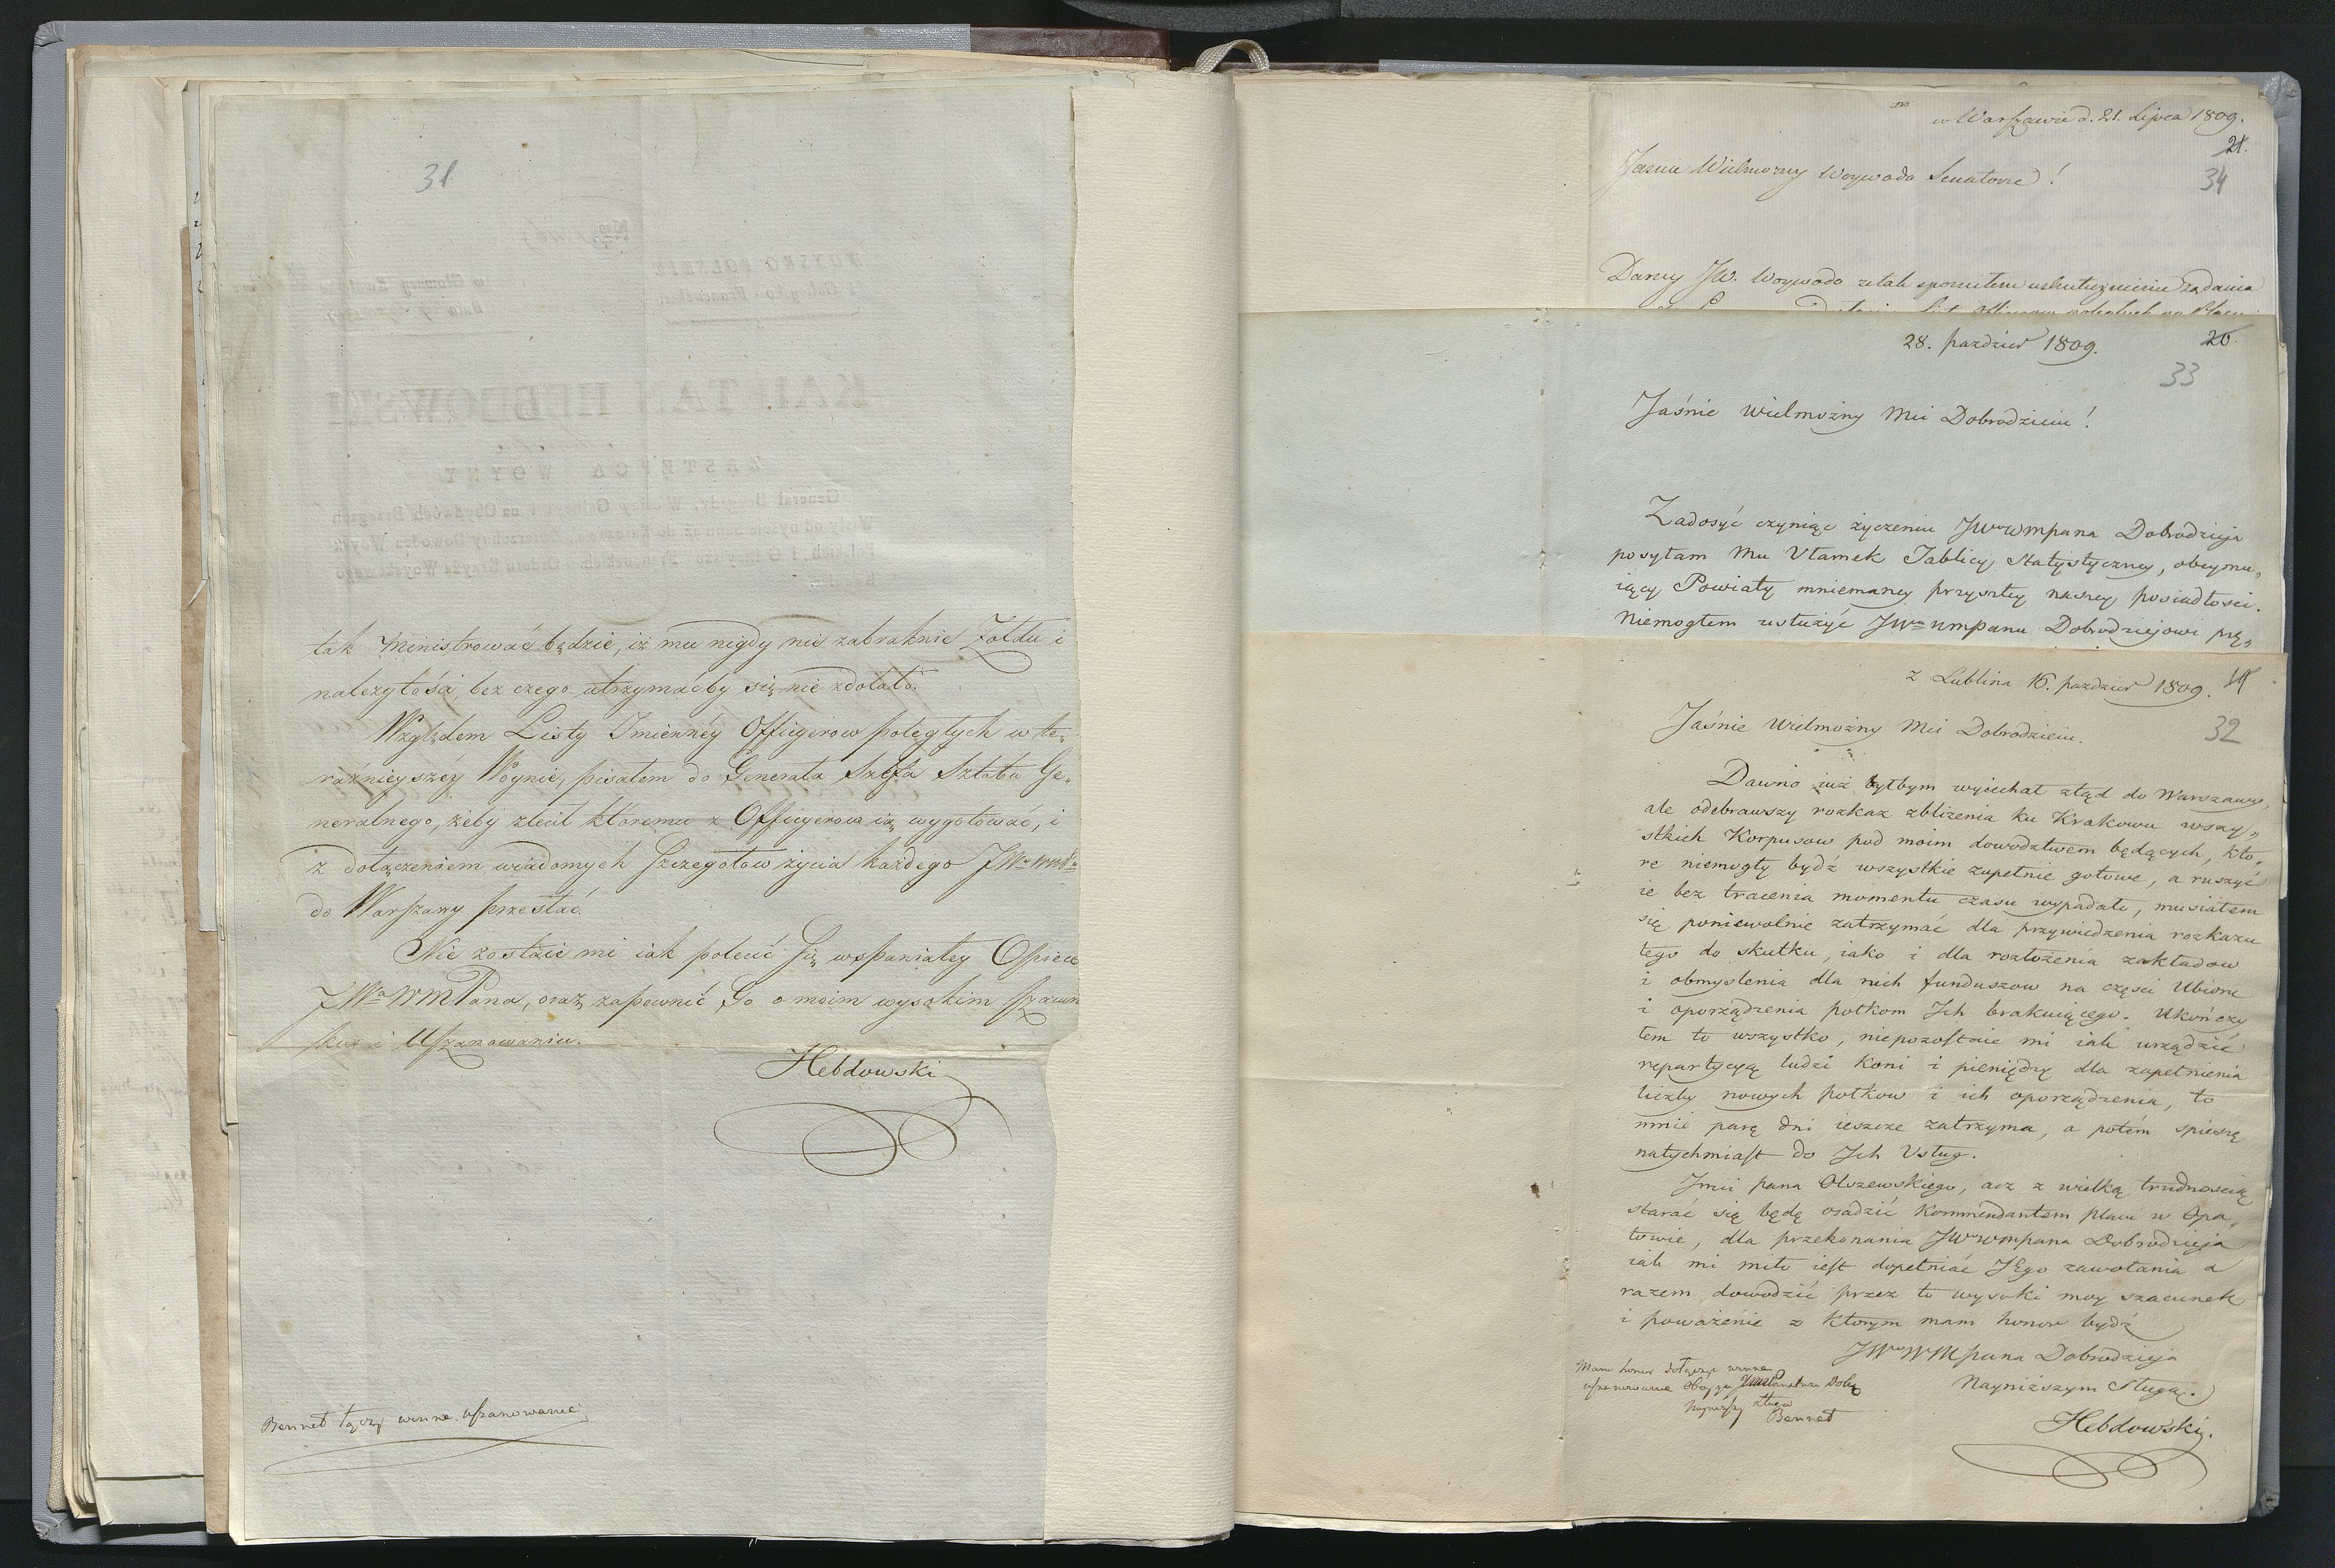 31
tak Ministrować będzie, iż mu nigdy nie zabraknie Żołdu i
należytości, bez czego utrzymaćby się nie zdołało.
Względem Listy Imiennéy Officyerow poległych w te„
raźnieyszéy Woynie, pisałem do Generała Szefa Sztabu Ge„
neralnego, żeby zlecił któremu z Officyerow ią wygotować, i
z dołączeniem wiadomych szczegołow życia każdego
do Warszawy przesłać.
Nie zostaie mi iak polecić się wspaniałey Opiece
JWo WMPana, oraz zapewnić Go o moim wysokim szacun
ku i Uszanowaniu.
Hebdowski
Bennet łączy winne uszanowanie
w Warszawie d. 21. Lipca 1809.
21.
34
Jasnie Wielmozny Woywodo Senatorze!
Daruy JW. Woywodo ze tak spoznilem uskutecznienie żądania
28. paździer 1809.
20
33
Jaśnie Wielmożny Mci Dobrodzieiu!
Zadosyć czyniąc życzeniu JWo wmpana Dobrodzieja
posyłam Mu Ułamek Tablicy Statystyczney, obeymu„
iący Powiaty mniemaney przyszłey naszey posiadłości.
Niemogłem usłużyć JWu wmpanu Dobrodziejowi prę„
z Lublina 16. paździer 1809.
19
32
Jaśnie Wielmożny Mci Dobrodzieiu.
Dawno iuż byłbym wyiechał ztąd do Warszawy,
ale odebrawszy rozkaz zbliżenia ku Krakowu wszy„
stkich Korpusow pod moim dowodztwem będących, kto„
re niemogły bydź wszystkie zupełnie gotowe, a ruszyć
ie bez tracenia momentu czasu wypadało, musiałem
się poniewolnie zatrzymać dla przywiedzenia rozkazu
tego do skutku, iako i dla rozłożenia zakładow
i obmyślenia dla nich funduszow na częsci Ubioru
i oporządzenia połkom Ich brakuiącego. Ukończy
łem to wszystko, niepozostaie mi iak urządzić
repartycyą ludzi koni i pieniędzy dla zapełnienia
liczby nowych połkow i ich oporządzenia, to
mnie parę dni ieszcze zatrzyma, a potém spieszę
natychmiast do Ich Usług.
Jmci pana Olszewskiego, acz z wielką trudnoscią
starać się będę osadzić Kommendantem placu w Opa„
towie, dla przekonania JWo wmpana Dobrodzieja
iak mi miło iest dopełniać JEgo zawołania a
razem dowodzić przez to wysoki moy szacunek
i poważenie z ktorym mam honor bydź
JWo WMpana Dobrodzieja
Nayniższym Sługą.
Hebdowski.
Mam honor dołączyć winne
uszanowanie
sługa
Bennet